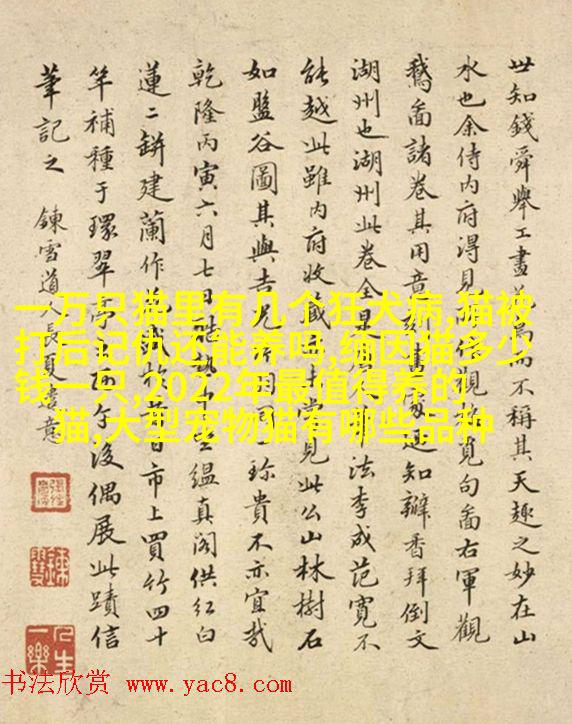 世知錢舜舉工畫花鳥而不稱其天趣之妙在山
水也余侍内府得見觀覓句畵右軍觀
鵞畵諸卷其用意知瓣香拜倒文
湖州也湖州此卷全法李成范寬不
能越此雖内府收藏見此公山林樹石
如盤谷圖其與吉光珍貴不亦宜哉
乾隆丙寅六月七日酷熱坐緼真阁供紅白
蓮二缾建蘭作日市上買竹四十
竿補種于環翠午後偶展此蹟信
筆記之 鍊雪道人長夏
一万只猫里有几个狂犬病,猫被
打后记仇还能养吗,缅因猫多少
钱一只,2022年最值得养的
猫,大型宠物猫有哪些品种
人生一樂
书法欣赏 www.yac8.com